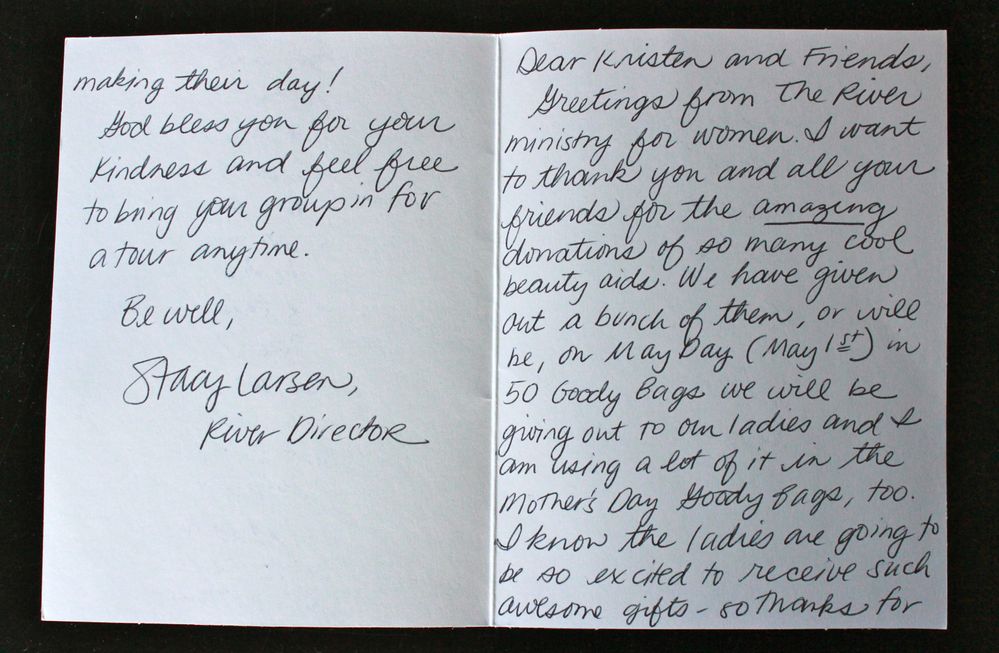 Dear Kristen and Friends,
Greetings from The River
ministry for women. I want
to thank you and all your
friends for the amazing
donations of so many cool
beauty aids. We have given
out a bunch of them, or will
be, on May Day (May 1st) in
50 Goody Bags we will be
giving out to our ladies and I
am using a lot of it in the
Mother's Day Goody Bags, too.
I know the ladies are going to
be so excited to receive such
awesome gifts - so thanks for
making their day!
God bless you for your
kindness and feel free
to bring your group in for
a tour anytime.
Be well,
Stacy Larsen,
River Director